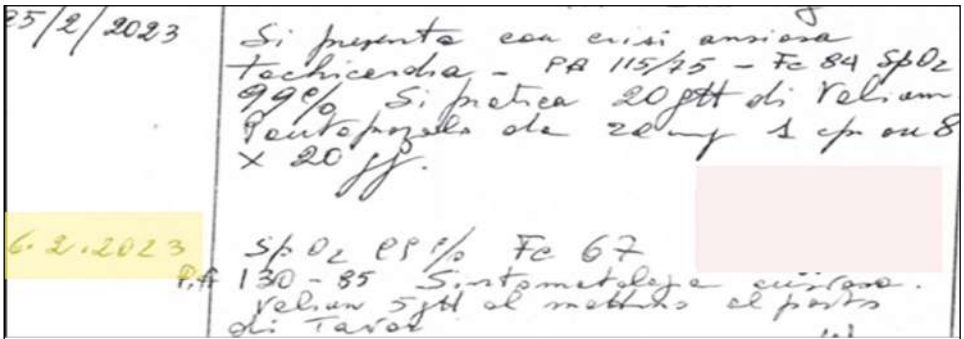 25/2/2023
Si presenta con crisi ansiosa
tachicardia - PA 115/75 - Fc 84 SpO2
99% Si pratica 20 gtt di Valium
Pantoprazolo da 20 mg 1 cp ore 8
x 20 gg.
6.2.2023
SpO2 99% Fc 67
P.A 130-85 Sintomatologia ansiosa.
Valium 5 gtt al mattino al posto
di Tavor